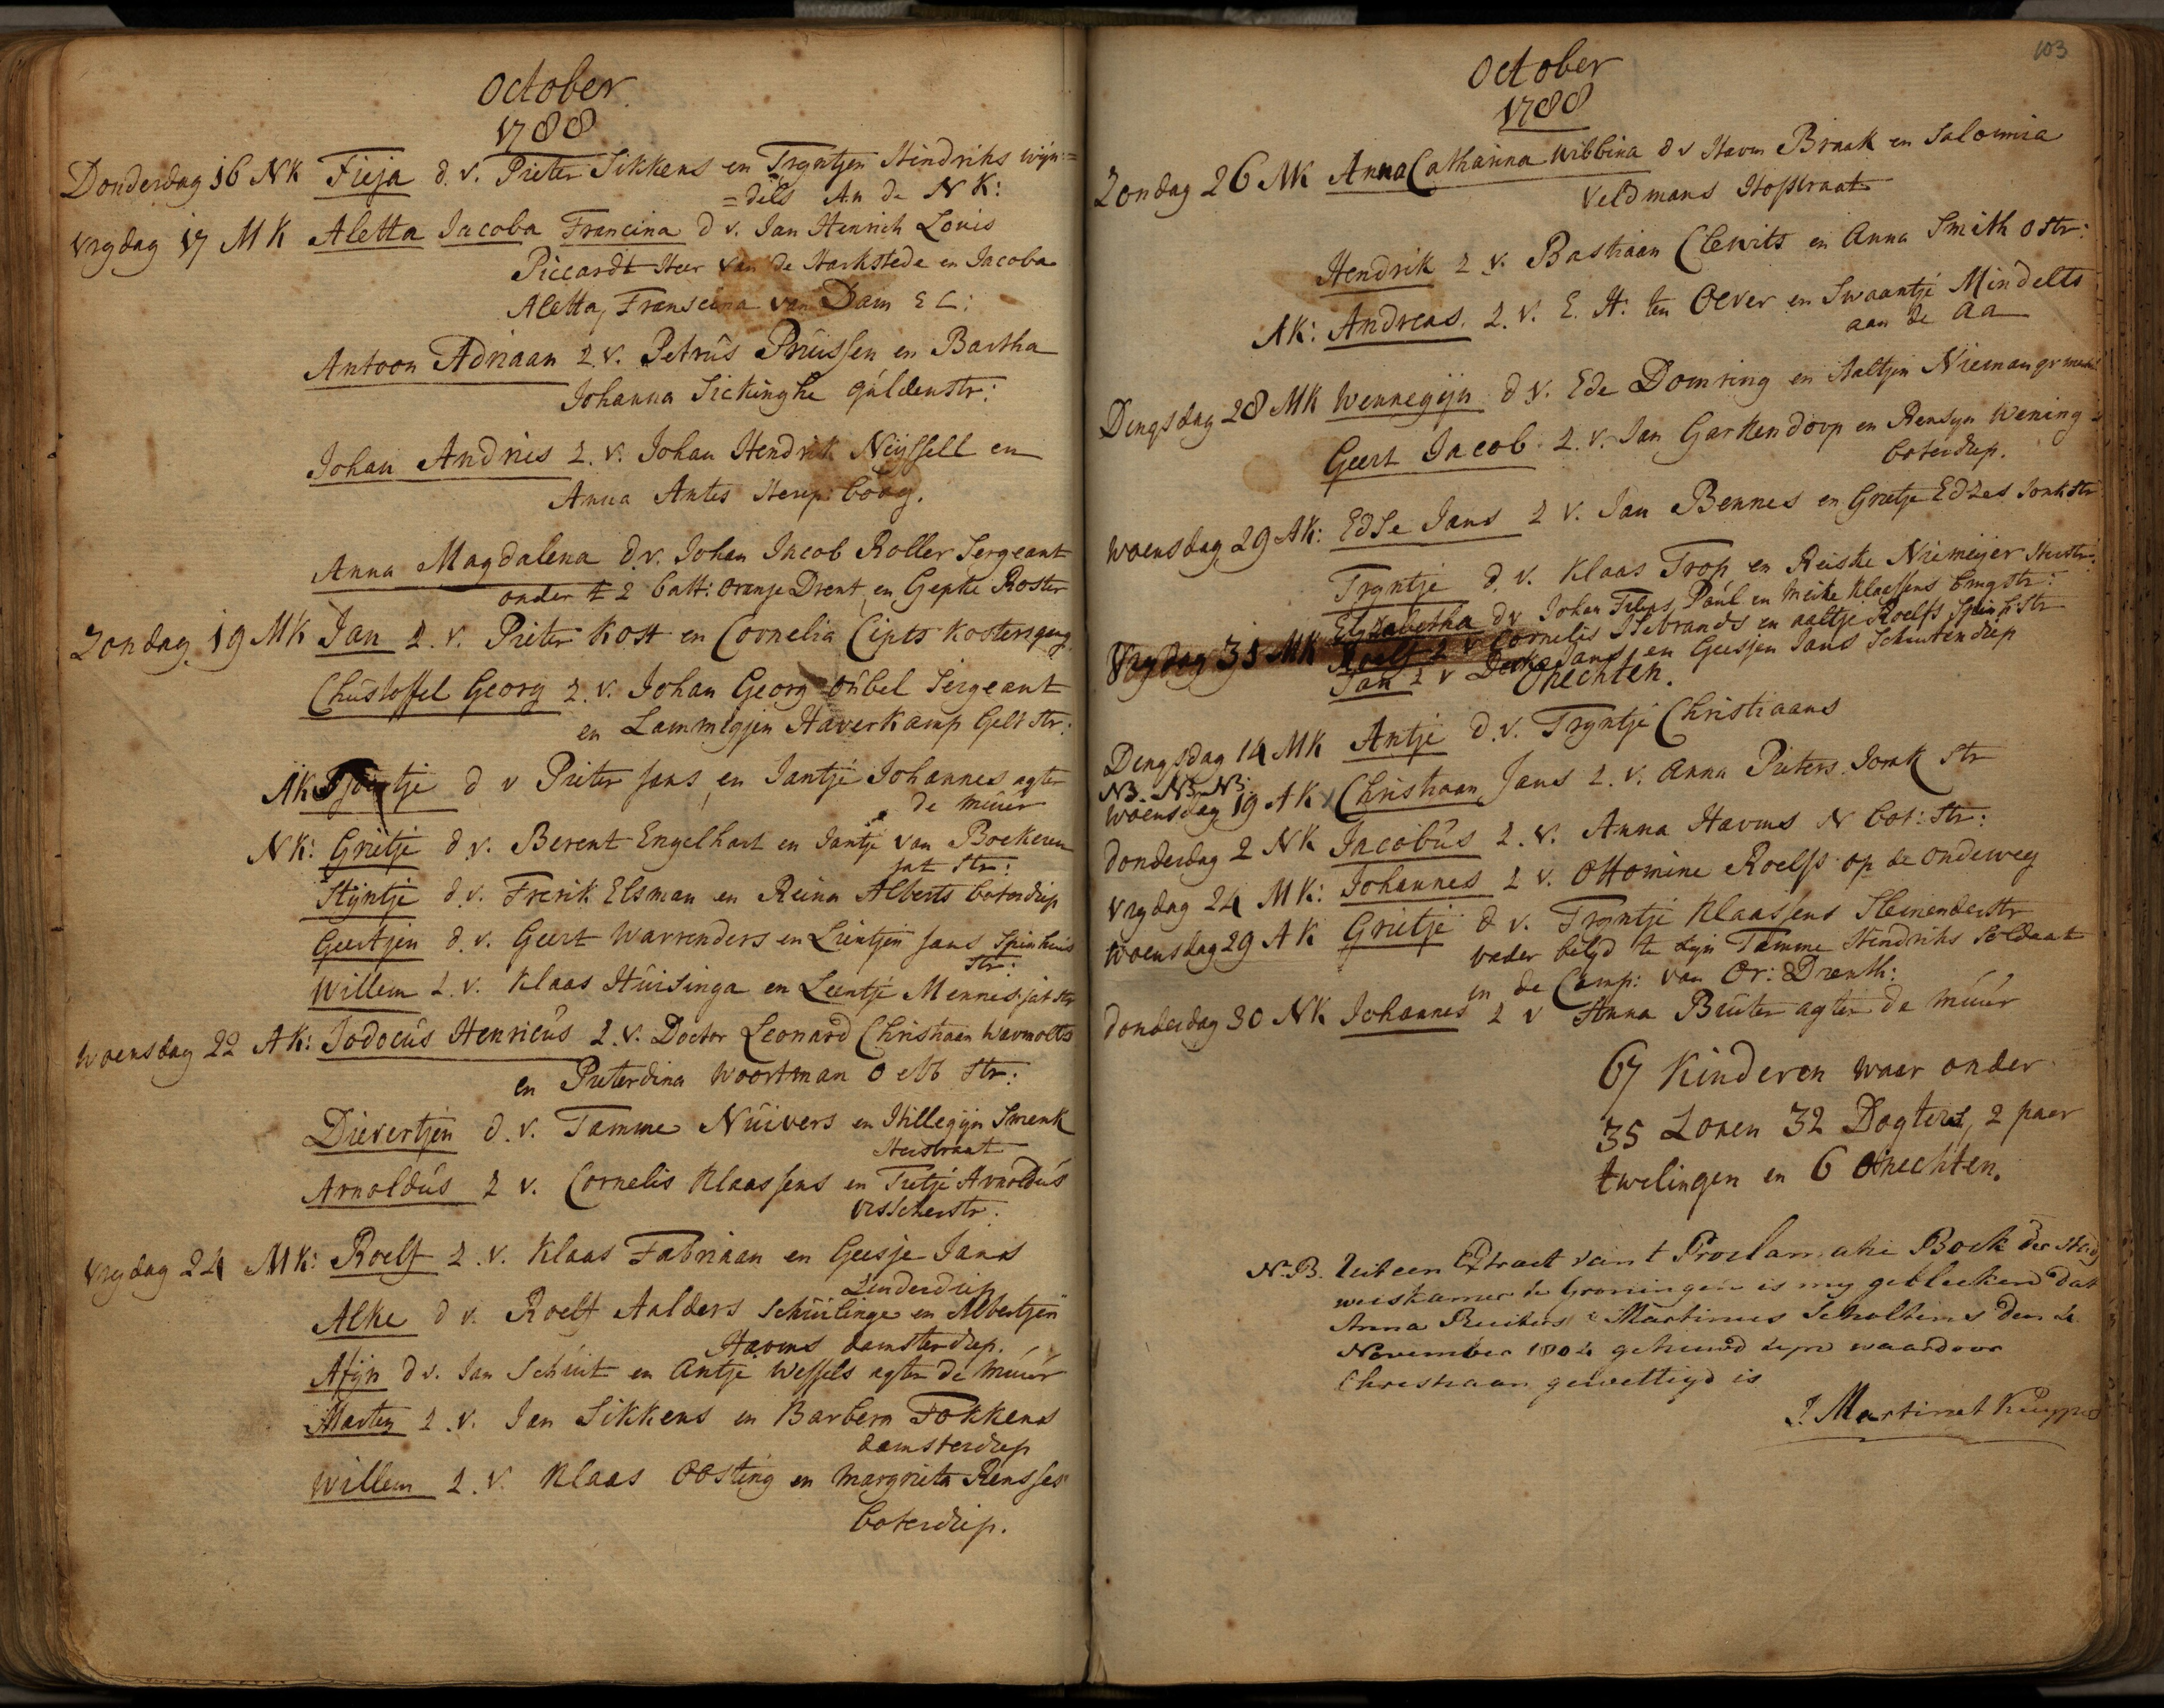 October
1788
Donderdag 16 NK Fieja d. v. Pieter Sikkens en Tryntjen Hindriks wijn=
=dels An de N K:
Vrydag 17 MK Aletta Jacoba Francina d v. Jan Henrich Louis
Piccardt Heer van de Harkstede en Jacoba
Aletta Franscina van Dam E L:
Antoon Adriaan Z. v. Petrus Pruissen en Bartha
Johanna Sickinghe guldenstr:
Johan Andries Z. v. Johan Hendrik Neijssell en
Anna Antes
Anna Magdalena d. v. Johan Jacob Roller Sergeant
onder t 2 batt: oranje Drent en Gepke Roster
Zondag 19 MK Jan Z. v. Pieter Kost en Cornelia Cipts kostersgang
Christoffel Georg Z. v. Johan Georg Sergeant
en Lammegjen Haverkamp Gelk str:
AK d v Pieter Jans en Jantje Johannes agter
de muur
NK: Grietje d. v. Berent Engelhart en Jantje van Boekeren
jat str:
Styntje d. v. Frerik Elsman en Reina Alberts boterdiep
Geertjen d. v. Geert Warrenders en Lientjen Jans Spinhuis
str:
Willem Z. v. Klaas Huisinga en Leentje Mennes jat str
Woensdag 22 AK: Jodocus Henricus Z. v. Doctor Leonard Christiaan Warmolts
en Pieterdina Woortman O ebb str:
Dievertjen d. v. Tamme Nuivers en Hillegijn Smenk
Heerstraat
Arnoldus Z v. Cornelis Klaassens en Tietje Arnoldus
Visscherstr:
Vrydag 24 MK: Roelf Z. v. Klaas Fabriaan en Geesje Jans
Zuiderdiep
Alke d v. Roelf Aalders Schuilinge en Albertjen
Havens damsterdiep.
Afijn d v. Jan Schuit en Antje Wessels agter de muur
Marten Z. v. Jan Sikkens en Barbera Fokkens
damsterdiep
Willem Z. v. Klaas Oosting en Margrieta Rensses
boterdiep.
103
October
1788
Zondag 26 MK Anna Catharina Wibbina d v Harm Braak en Salomia
Veldmans Hofstraat
Hendrik Z. v. Bastiaan Clewits en Anna Smith O str:
AK: Andreas. Z. v. E. H. ten Oever en Swaantje Mindelts
aan de Aa
Dingsdag 28 MK Wennegijn d v. Ede Domring en Aaltjen Nieman
Geert Jacob Z. v. Jan Garkendoop en Rensyn Wening
boterdiep.
Woensdag 29 AK: Edse Jans Z v. Jan Bennes en Grietje Edzes Jonkstr
Tryntje d. v. Klaas Trop en Reiske Niemeijer Heerstr:
Elyzabetha dv Johan Paul en Meike Klaassens brugstr:
Vrydag 31 MK Roelf Z v Cornelis IJsebrands en Aaltje Roelfs Spinhstr
Jan Z v Derk Jans en Geesjen Jans Schuitendiep
Onechten.
Dingsdag 14 MK Antje d. v. Tryntje Christiaans
NB. NB. NB.
Woensdag 19 AK Christiaan Jans Z. v. Anna Pieters Jonk str
Donderdag 2 NK Jacobus Z. v. Anna Havens N bot: str:
Vrydag 24 MK: Johannes Z v. Ottomine Roelfs op de ondeweg
Woensdag 29 AK Grietje d v. Tryntje Klaassens Steinenderstr
vader belyd te zyn Tamme Hendriks Soldaat
in de Comp: van Or: Drenth:
Donderdag 30 NK Johannes Z v Anna Bruter agter de muur
67 Kinderen waar onder
35 Zonen 32 Dogters, 2 paar
twelingen en 6 Onechten.
N.B. Uit een Extract van t Proclamatie Boek der Stad
weeskamer te Groningen is my gebleeken dat
Anna Pieters & Martinus Scholtens den 24
November 1804 getrouwd zyn waardoor
Christiaan gewettigd is
J. Martinet Kuyper